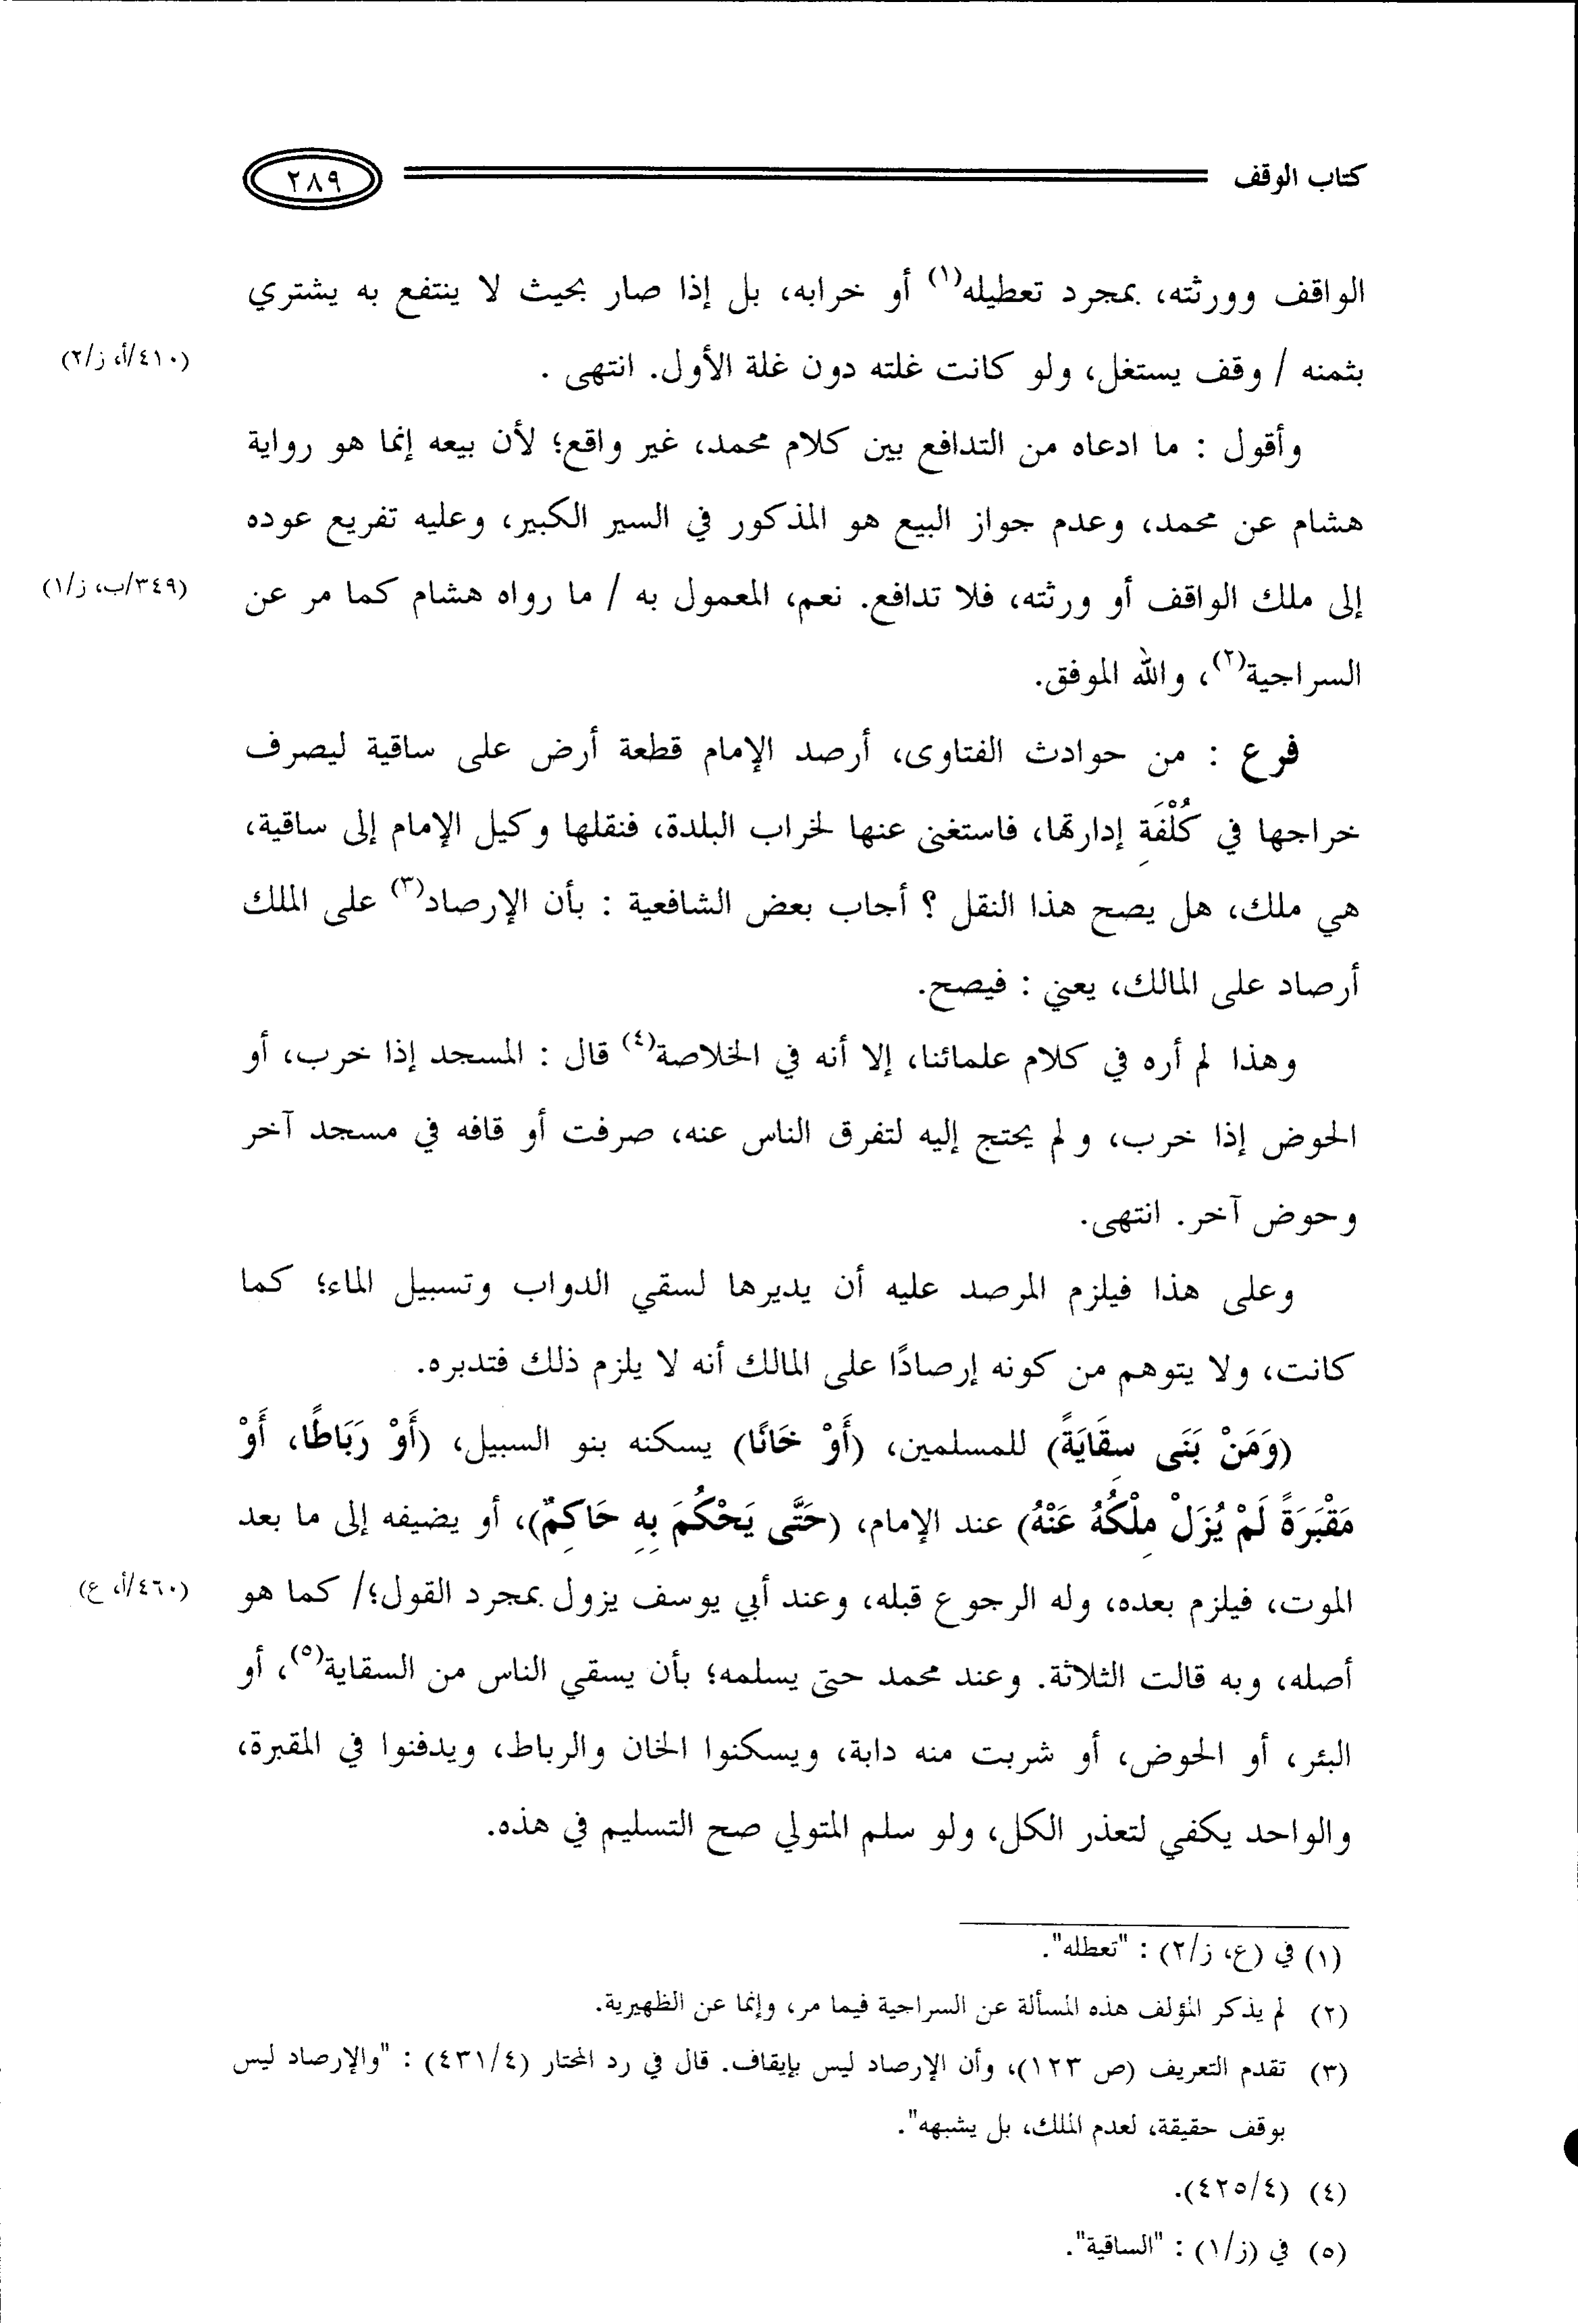 كتاب الوقف ٢٨٩
الواقف وورثته، بمجرد تعطيله(١) أو خرابه، بل إذا صار بحيث لا ينتفع به يشتري
بثمنه / وقف يستغل، ولو كانت غلته دون غلة الأول. انتهى . (٤١٠/أ، ز/٢)
وأقول : ما ادعاه من التدافع بين كلام محمد، غير واقع؛ لأن بيعه إنما هو رواية
هشام عن محمد، وعدم جواز البيع هو المذكور في السير الكبير، وعليه تفريع عوده
إلى ملك الواقف أو ورثته، فلا تدافع. نعم، المعمول به / ما رواه هشام كما مر عن (٣٤٩/ب، ز/١)
السراجية(٢)، والله الموفق.
فرع : من حوادث الفتاوى، أرصد الإمام قطعة أرض على ساقية ليصرف
خراجها في كُلْفَةِ إدارتها، فاستغنى عنها لخراب البلدة، فنقلها وكيل الإمام إلى ساقية،
هي ملك، هل يصح هذا النقل ؟ أجاب بعض الشافعية : بأن الإرصاد(٣) على الملك
أرصاد على المالك، يعني : فيصح.
وهذا لم أره في كلام علمائنا، إلا أنه في الخلاصة(٤) قال : المسجد إذا خرب، أو
الحوض إذا خرب، و لم يحتج إليه لتفرق الناس عنه، صرفت أو قافه في مسجد آخر
وحوض آخر. انتهى.
وعلى هذا فيلزم المرصد عليه أن يديرها لسقي الدواب وتسبيل الماء؛ كما
كانت، ولا يتوهم من كونه إرصادًا على المالك أنه لا يلزم ذلك فتدبره.
(وَمَنْ بَنَى سِقَايَةً) للمسلمين، (أَوْ خَانًا) يسكنه بنو السبيل، (أَوْ رَبَاطًا، أَوْ
مَقْبَرَةً لَمْ يُزَلْ مِلْكُهُ عَنْهُ) عند الإمام، (حَتَّى يَحْكُمَ بِهِ حَاكِمٌ)، أو يضيفه إلى ما بعد
الموت، فيلزم بعده، وله الرجوع قبله، وعند أبي يوسف يزول بمجرد القول؛/ كما هو (٤٦٠/أ، ع)
أصله، وبه قالت الثلاثة. وعند محمد حتى يسلمه؛ بأن يسقي الناس من السقاية(٥)، أو
البئر، أو الحوض، أو شربت منه دابة، ويسكنوا الخان والرباط، ويدفنوا في المقبرة،
والواحد يكفي لتعذر الكل، ولو سلم المتولي صح التسليم في هذه.
(١) في (ع، ز/٢) : "تعطله".
(٢) لم يذكر المؤلف هذه المسألة عن السراجية فيما مر، وإنما عن الظهيرية.
(٣) تقدم التعريف (ص ١٢٣)، وأن الإرصاد ليس بإيقاف. قال في رد المحتار (٤٣١/٤) : "والإرصاد ليس
بوقف حقيقة، لعدم الملك، بل يشبهه".
(٤) (٤٢٥/٤).
(٥) في (ز/١) : "الساقية".